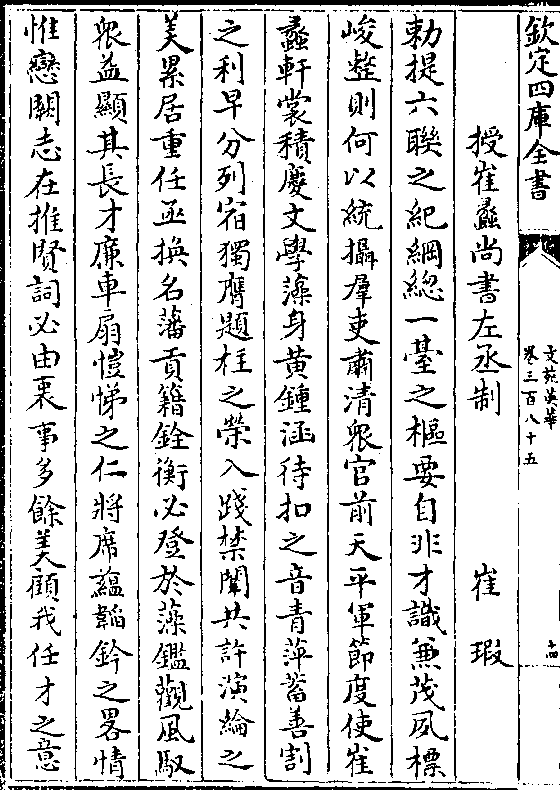 欽定四庫全書
文苑英華
卷三百八十五
十四
授崔蠡尚書左丞制
崔瑕
勅提六聯之紀綱總一臺之樞要自非才識兼茂夙標
峻整則何以統攝羣吏肅清衆官前天平軍節度使崔
蠡軒裳積慶文學藻身黃鍾涵待扣之音青萍蓄善割
之利早分列宿獨膺題柱之榮入踐禁闈共許演綸之
美累居重任亟換名藩貢籍銓衡必登於藻鑑觀風馭
衆益顯其長才廉車扇愷悌之仁將席蘊韜鈐之畧情
惟戀闕志在推賢詞必由衷事多餘美顧我任才之意